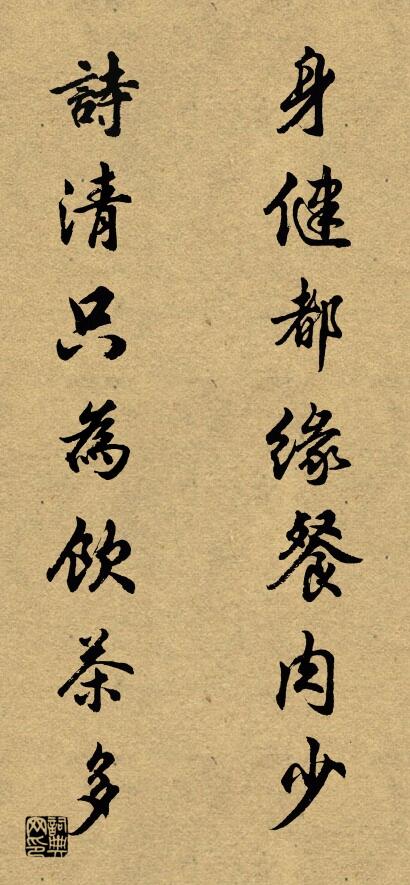 身健都緣餐肉少
詩清只為飲茶多
詞典
网印